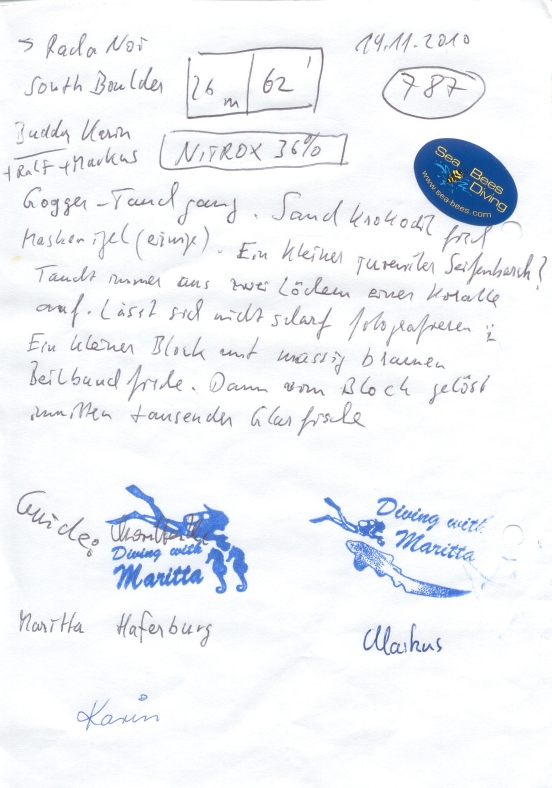 → Racha Noi 19.11.2010
South Boulder 26 m 62' 787
Buddy Karin
+ Ralf + Markus NITROX 36%
Sea Bees Diving
www.sea-bees.com
Gogger-Tauchgang. Sand Krokodilfisch
Maskenigel (einige). Ein kleiner juveniler Seifenbarsch?
Taucht immer aus zwei Löchern einer Koralle
auf. Lässt sich nicht scharf fotografieren
Ein kleiner Block mit massig braunen
Beilbauchfische. Dann vom Block gelöst
inmitten tausender Glasfische
Guide:
Diving with
Maritta
Diving with
Maritta
Maritta Haferburg
Markus
Karin